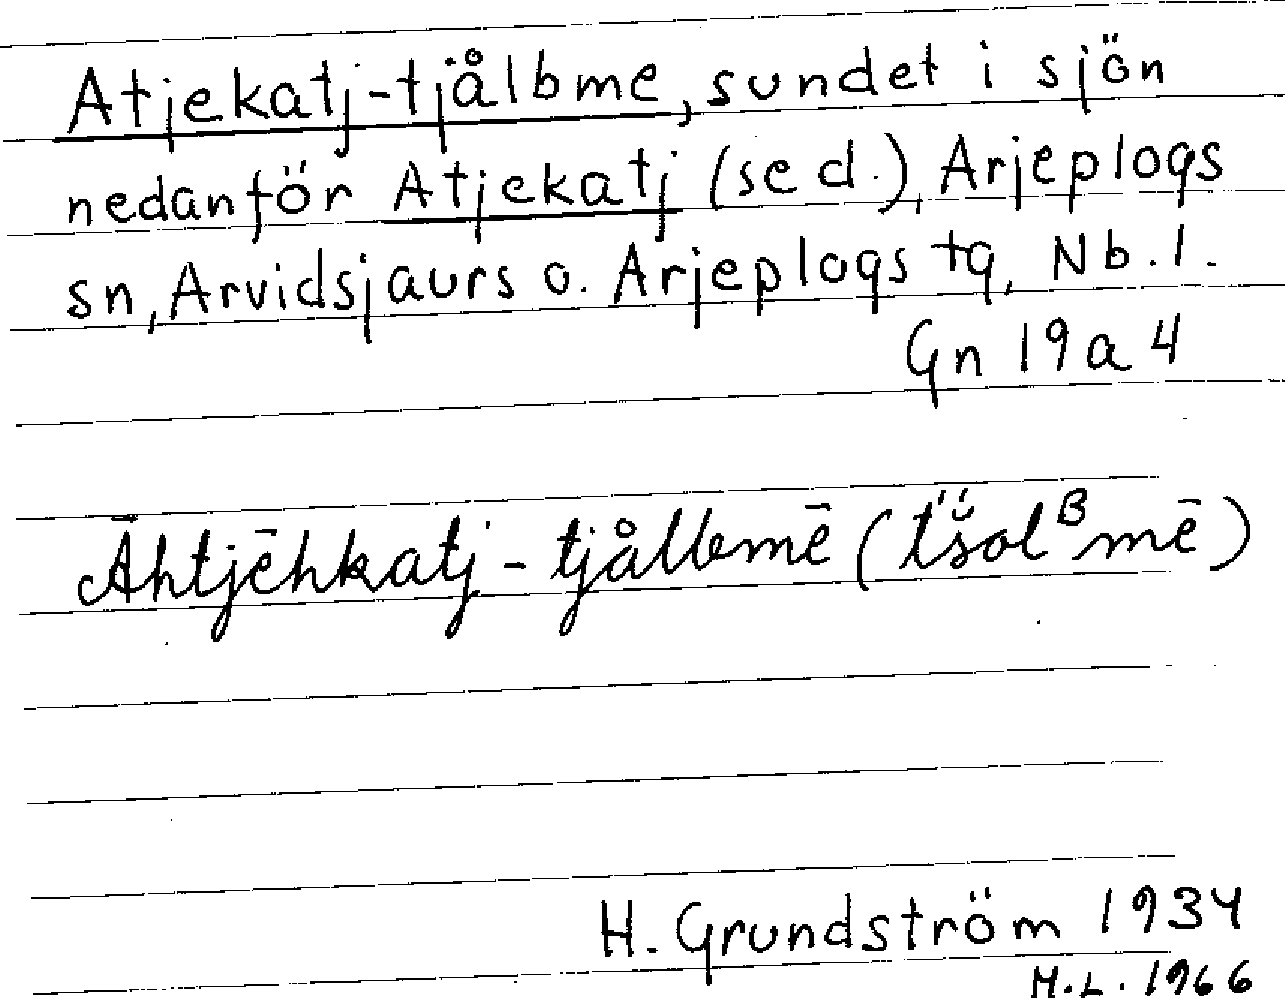 Atjekatj-tjålbme, sundet i sjön
nedanför Atjekatj (se d.), Arjeplogs
sn, Arvidsjaurs o. Arjeplogs tg, Nb. l.
Gn 19 a 4
Āhtjēhkatj - tjålbmē (t́š̆olᴮmē)
H. Grundström 1934
H.L. 1966